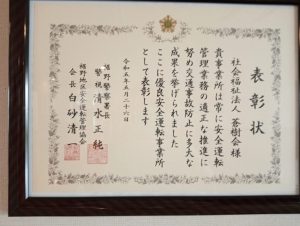 表彰状
社会福祉法人 蒼樹会様
貴事業所は常に安全運転
管理業務の適正な推進に
努め交通事故防止に多大な
成果を挙げられました
ここに優良安全運転事業所
として表彰します
令和五年五月二十六日
裾野警察署長
警視 清水正純
裾野地区安全運転管理協会
会長 白砂清一